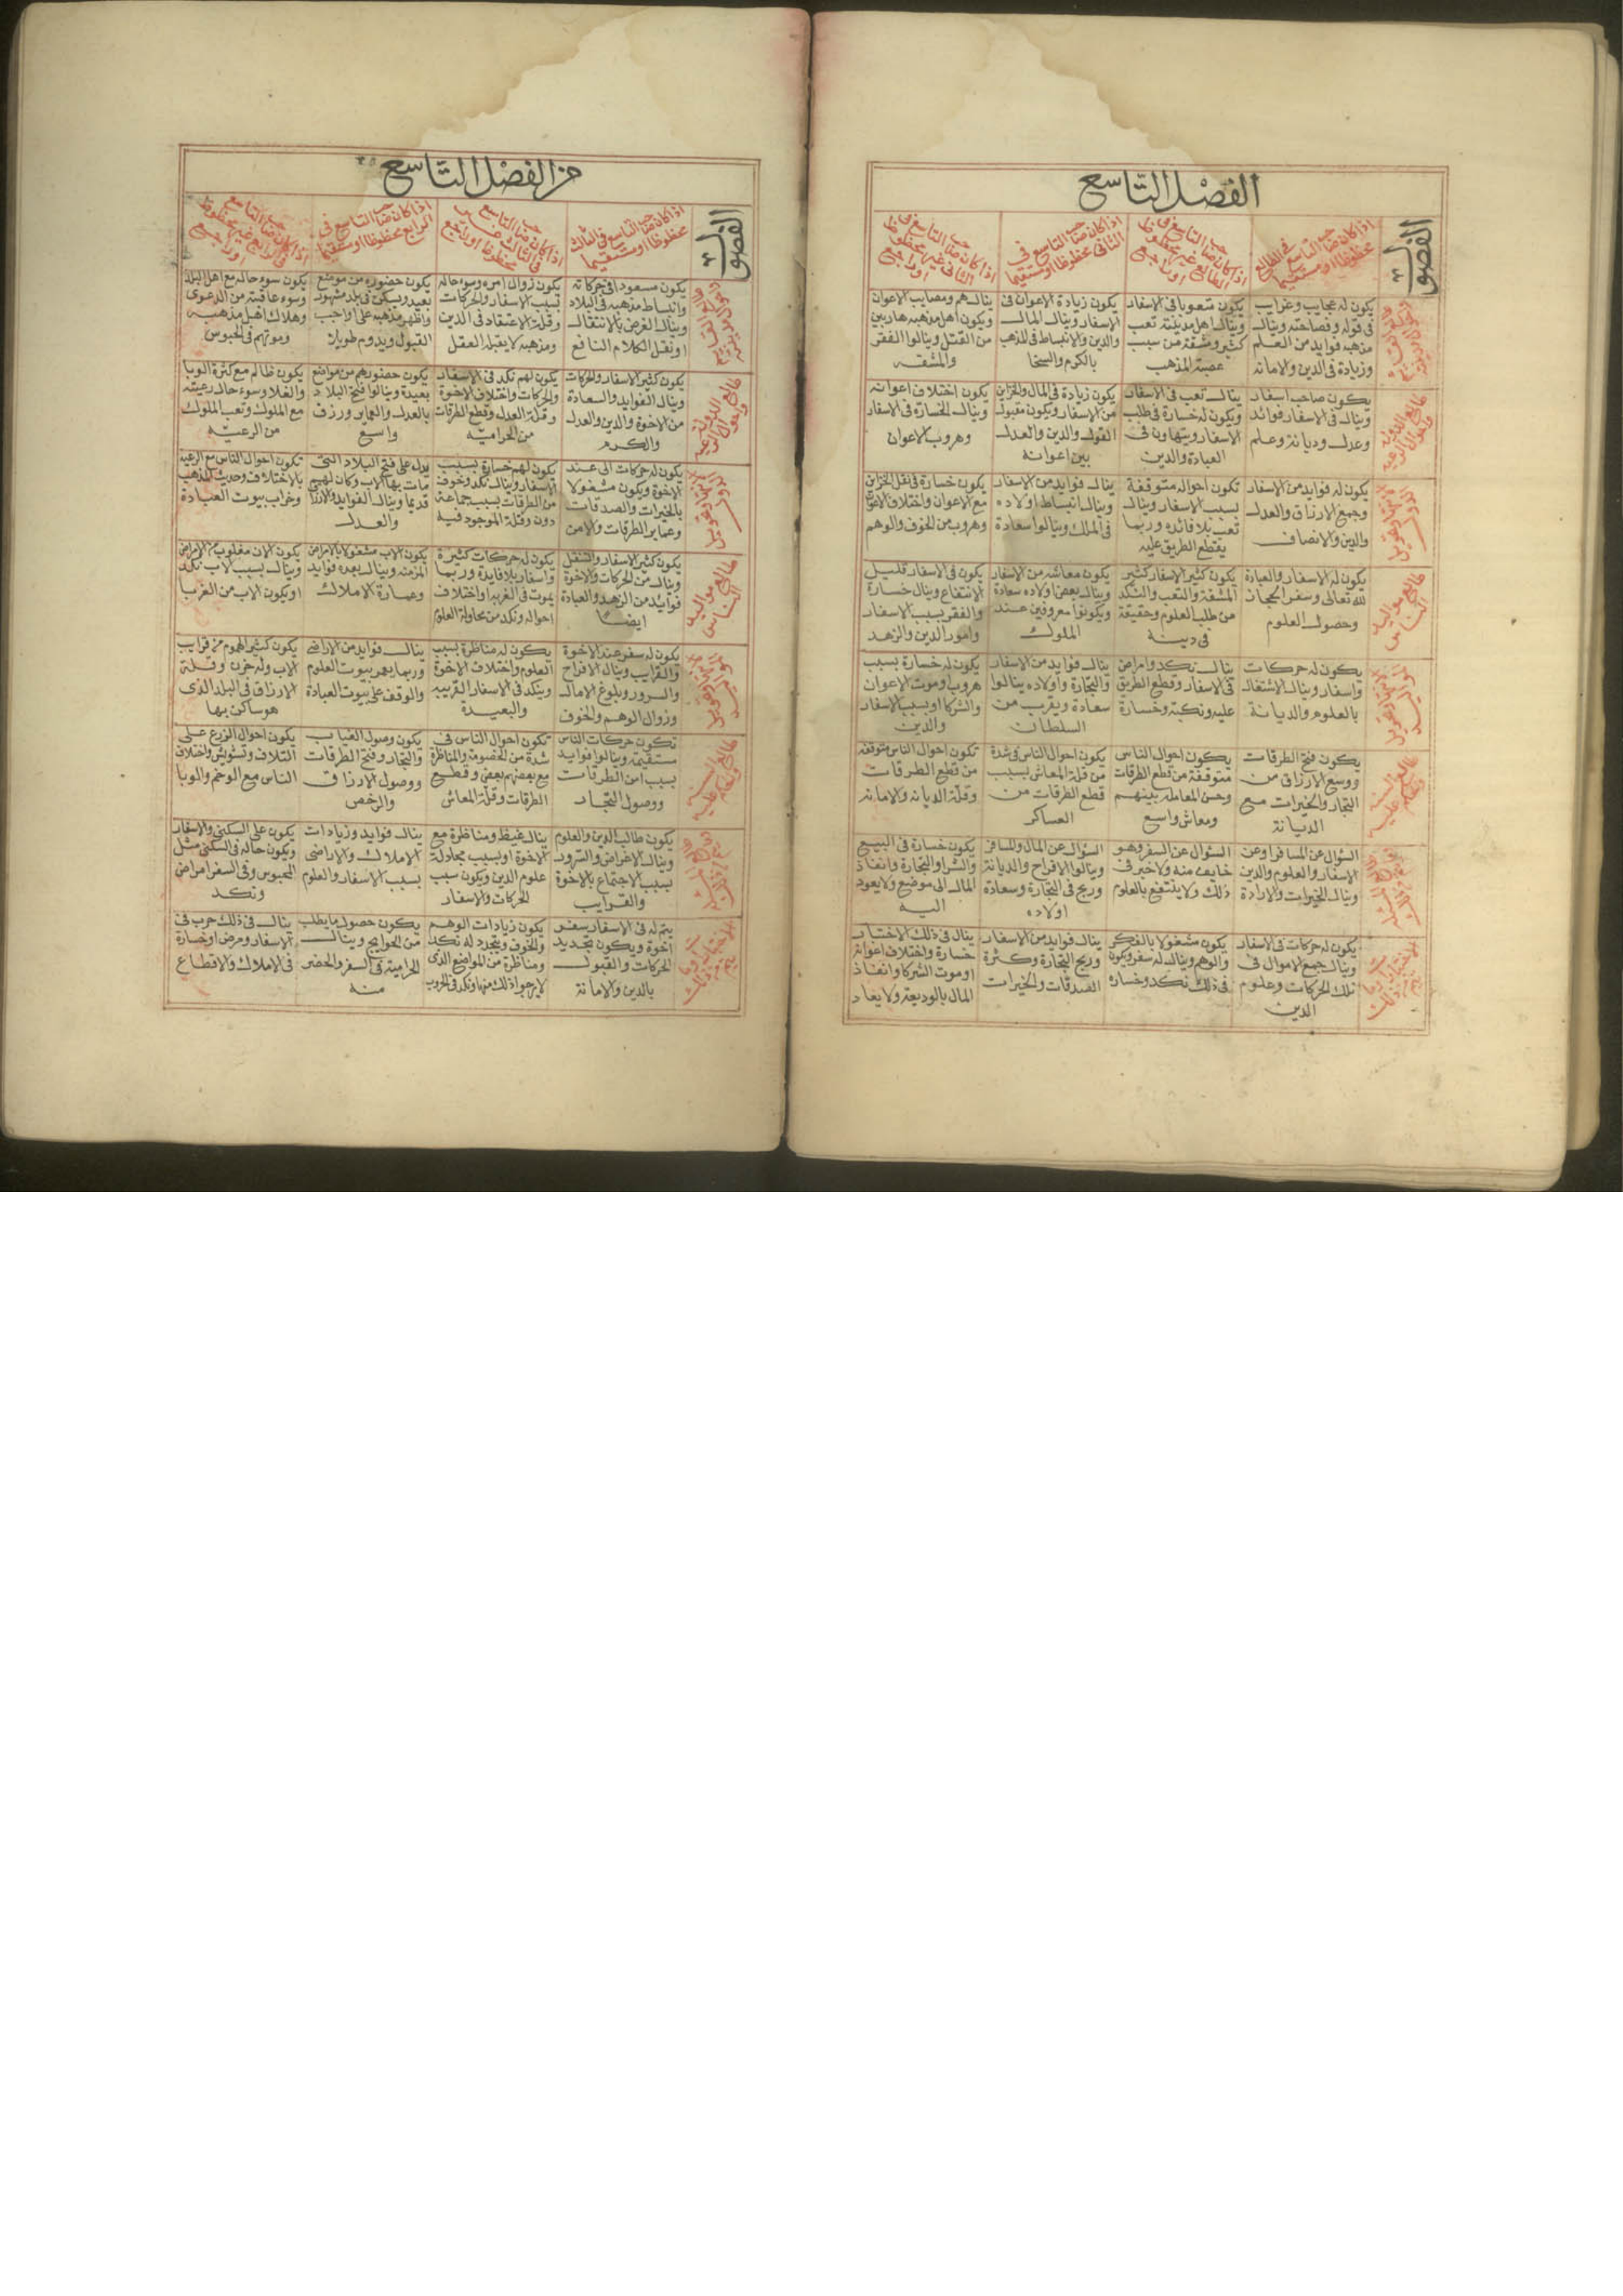 الفصل التاسع
الفصول
اذا كان صاحب التاسع في الطالع
محظوظا او مستقيما
اذا كان صاحب التاسع في
الطالع غير محظوظ
او راجع
اذا كان صاحب التاسع في
الثاني محظوظا او مستقيما
اذا كان صاحب التاسع في
الثاني غير محظوظ
او راجع
يكون له عجايب وغرايب
في قوله وفصاحته وينال
مذهبه فوايد من العلم
وزيادة في الدين والامانه
يكون متعوبا في الاسفار
وينال اهل مدينته تعب
كثير ومشقة من سبب
عصبة المذهب
يكون زيادة الاعوان في
الاسفار وينال المال
والدين والانبساط في المذهب
بالكرم والسخا
ينال هم ومصايب الاعوان
ويكون اهل مذهبه هاربين
من القتل وينالوا الفقر
والمشقه
طالع الدوله
يكون صاحب اسفار
وينال في الاسفار فوائد
وعدل وديانة وعلم
ينال تعب في الاسفار
ويكون له خسارة في طلب
الاسفار ويتهاون في
العبادة والدين
يكون زيادة في المال والخزاين
من الاسفار ويكون مقبول
القول والدين والعدل
بين اعوانه
يكون اختلاف اعوانه
وينال الخسارة في الاسفار
وهروب الاعوان
يكون له فوايد من الاسفار
وجمع الارزاق والعدل
والدين والانصاف
تكون احواله متوقفة
بسبب الاسفار وينال
تعب بلا فائده وربما
يقطع الطريق عليه
ينال فوايد من الاسفار
وينال انبساط اولاده
في الملك وينالوا سعادة
يكون خسارة في نقل الخزاين
مع الاعوان واختلاف الاعوان
وهروب من الخوف والوهم
طالع مواليد
الناس
يكون له الاسفار والعبادة
لله تعالى وسفر الحجاز
وحصول العلوم
يكون كثير الاسفار كثير
المشقة والتعب والنكد
من طلب العلوم وحقيقة
في دينه
يكون معاشه من الاسفار
وينال بعض اولاده سعادة
ويكونوا معروفين عند
الملوك
يكون في الاسفار قليل
الانتفاع وينال خسارة
والفقر بسبب الاسفار
وامور الدين والزهد
يكون له حركات
واسفار وينال الاشتغال
بالعلوم والديانة
ينال نكد وامراض
في الاسفار وقطع الطريق
عليه ونكبة وخسارة
ينال فوايد من الاسفار
والتجارة واولاده ينالوا
سعادة ويقرب من
السلطان
يكون له خسارة بسبب
هروب وموت الاعوان
والشركا او بسبب الاسفار
والدين
يكون فتح الطرقات
ووسع الارزاق من
التجار والخيرات مع
الديانة
يكون احوال الناس
متوقفة من قطع الطرقات
وحسن المعامله بينهم
ومعاش واسع
يكون احوال الناس في شدة
من قلة المعاش بسبب
قطع الطرقات من
العساكر
تكون احوال الناس متوقفه
من قطع الطرقات
وقلة الديانه والامانه
السؤال عن المسافر او عن
الاسفار والعلوم والدين
وينال الخيرات والارادة
السؤال عن السفر وهو
خايف منه ولا خير في
ذلك ولا ينتفع بالعلوم
السؤال عن المال والمسافر
وينالوا الافراح والديانة
وربح في التجارة وسعادة
اولاده
يكون خسارة في البيع
والشرا والتجارة وانفاذ
المال الى موضع ولا يعود
اليه
يكون له حركات في الاسفار
وينال جمع الاموال في
تلك الحركات وعلوم
الدين
يكون مشغولا بالفكر
والوهم وينال له سفر ويكون
في ذلك نكد وخسارة
ينال فوايد من الاسفار
وربح التجارة وكثرة
الصدقات والخيرات
ينال في ذلك الاختيار
خسارة واختلاف اعوانه
او موت الشركا وانفاذ
المال بالوديعة ولا يعاد
من الفصل التاسع
الفصول
اذا كان صاحب التاسع في الثالث
محظوظا او مستقيما
اذا كان صاحب التاسع
في الثالث غير
محظوظا او راجع
اذا كان صاحب التاسع في
الرابع محظوظا او مستقيما
اذا كان صاحب التاسع
في الرابع غير محظوظ
او راجع
يكون مسعودا في حركاته
وانبساط مذهبه في البلاد
وينال الغرض بالانتقال
او نقل الكلام النافع
يكون زوال امره وسوء حاله
بسبب الاسفار والحركات
وقلة الاعتقاد في الدين
ومذهبه لا يقبله العقل
يكون حضوره من موضع
بعيد ويسكن في بلد مشهور
واظهر مذهبه على اواجب
القبول ويدوم طويلا
يكون سوء حاله مع اهل البلد
وسوء عاقبته من الدعوى
وهلاك اهل مذهبه
وموتهم في الحبوس
يكون كثير الاسفار والحركات
وينال الفوايد والسعادة
من الاخوة والدين والعدل
والكرم
يكون لهم نكد في الاسفار
والحركات واختلاف الاخوة
وقلة العدل وقطع الطرقات
من الحراميه
يكون حضورهم من مواضع
بعيدة وينالوا فتح البلاد
بالعدل والعماير ورزق
واسع
يكون ظالم مع كثرة الوبا
والغلا وسوء حال رعيته
مع الملوك وتعب الملوك
من الرعيه
يكون له حركات الى عند
الاخوة ويكون مشغولا
بالخيرات والصدقات
وعماير الطرقات والامن
يكون لهم خسارة بسبب
الاسفار وينال نكد وخوف
من الطرقات بسبب جماعة
دون وقلة الموجود فيه
يدل على فتح البلاد التي
مات بها الاب وكان لهم
قديما وينال الفوايد والارزاق
والعدل
تكون احوال الناس مع الرعية
بالاختلاف وحديث المذهب
وخراب بيوت العبادة
طالع مواليد
الناس
يكون كثير الاسفار والتنقل
وينال من الحركات والاخوة
فوايد من الزهد والعبادة
ايضا
يكون له حركات كثيرة
واسفار بلا فايدة وربما
يموت في الغربه واختلاف
احواله ونكد من محاولة العلوم
يكون الاب مشغولا بالامراض
المزمنه وينال بعده فوايد
وعمارة الاملاك
يكون الاب مغلوب من الامراض
وينال بسبب الاب نكد
او يكون الاب من الغربا
يكون له سفر عند الاخوة
والقرايب وينال الافراح
والسرور وبلوغ الامال
وزوال الوهم والخوف
يكون له مناظرة بسبب
العلوم واختلاف الاخوة
وينكد في الاسفار القريبه
والبعيدة
ينال فوايد من الاراضي
وربما يعمر بيوت العلوم
والوقف على بيوت العبادة
يكون كثير الهموم من قرايب
الاب وله حزن وقلة
الارزاق في البلد الذي
هو ساكن بها
تكون حركات الناس
مستقيمة وينالوا فوايد
بسبب امن الطرقات
ووصول التجار
تكون احوال الناس في
شدة من الخصومة والمناظرة
مع بعضهم بعض وقطع
الطرقات وقلة المعاش
يكون وصول الغياب
والتجار وفتح الطرقات
ووصول الارزاق
والرخص
يكون احوال الزرع على
التلاف وتشويش واختلاف
الناس مع الوخم والوبا
يكون طالب الدين والعلوم
وينال الاغراض والسرور
بسبب الاجتماع بالاخوة
والقرايب
ينال غيظ ومناظرة مع
الاخوة او بسبب مجادلة
علوم الدين ويكون سبب
الحركات والاسفار
ينال فوايد وزيادات
الاملاك والاراضي
بسبب الاسفار والعلوم
يكون على السكنى والاسفار
ويكون حاله في السكنى مثل
المحبوس وفي السفر امراض
ونكد
يتم له في الاسفار سفر
اخوة ويكون تجديد
الحركات والقبول
بالدين والامانة
يكون زيادات الوهم
والخوف ويتجدد له نكد
ومناظرة من المواضع الذي
لا يرجوا ذلك منها ونكد في الحروب
يكون حصول ما يطلب
من الحوايج وينال
الحرامية في السفر والحضر
منه
ينال في ذلك حرب في
الاسفار ومرض او خسارة
في الاملاك والاقطاع